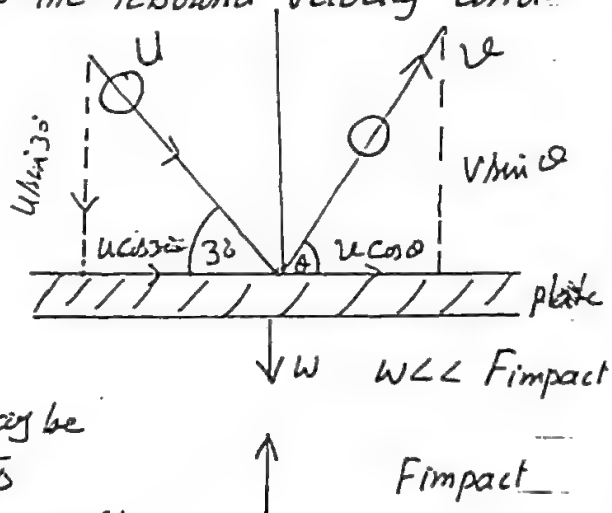 the rebound velocity
U
v
U sin 30
V sin θ
U cos 30
30
θ
v cos θ
plate
W
W << Fimpact
ay be
Fimpact